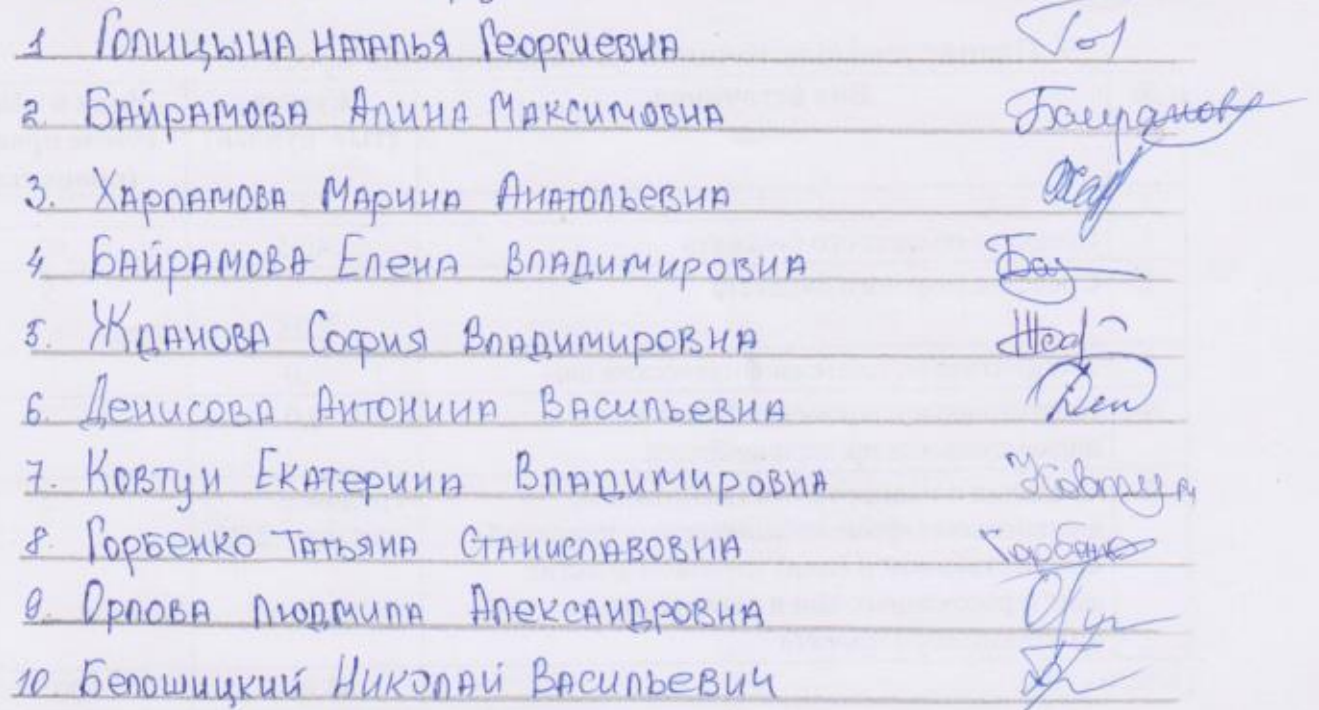 1 Голицына Наталья Георгиевна Гол
2. Байрамова Алина Максимовна Байрамова
3. Харламова Марина Анатольевна Хар
4 Байрамова Елена Владимировна Бай
5. Жданова София Владимировна
6. Денисова Антонина Васильевна Ден
7. Ковтун Екатерина Владимировна Ковтун
8. Горбенко Татьяна Станиславовна Горбенко
9. Орлова Людмила Александровна
10 Белошицкий Николай Васильевич